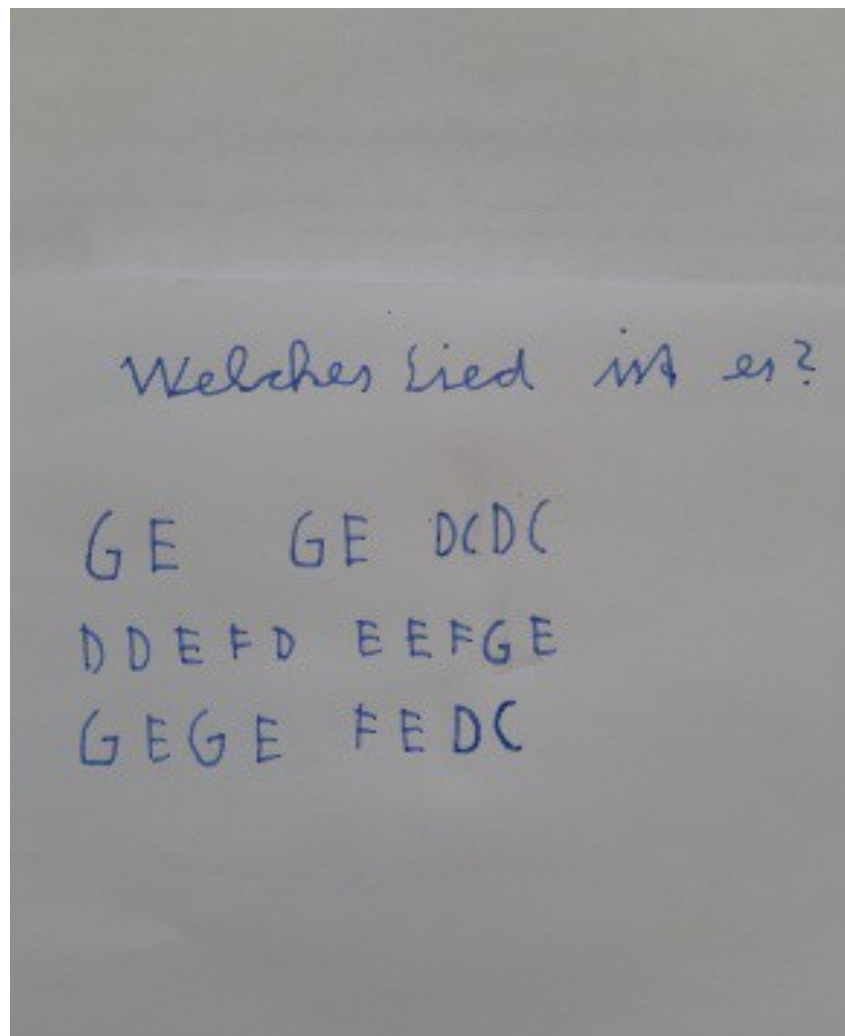 Welches Lied ist es?
GE GE DCDC
DDEFD EEFGE
GEGE FEDC